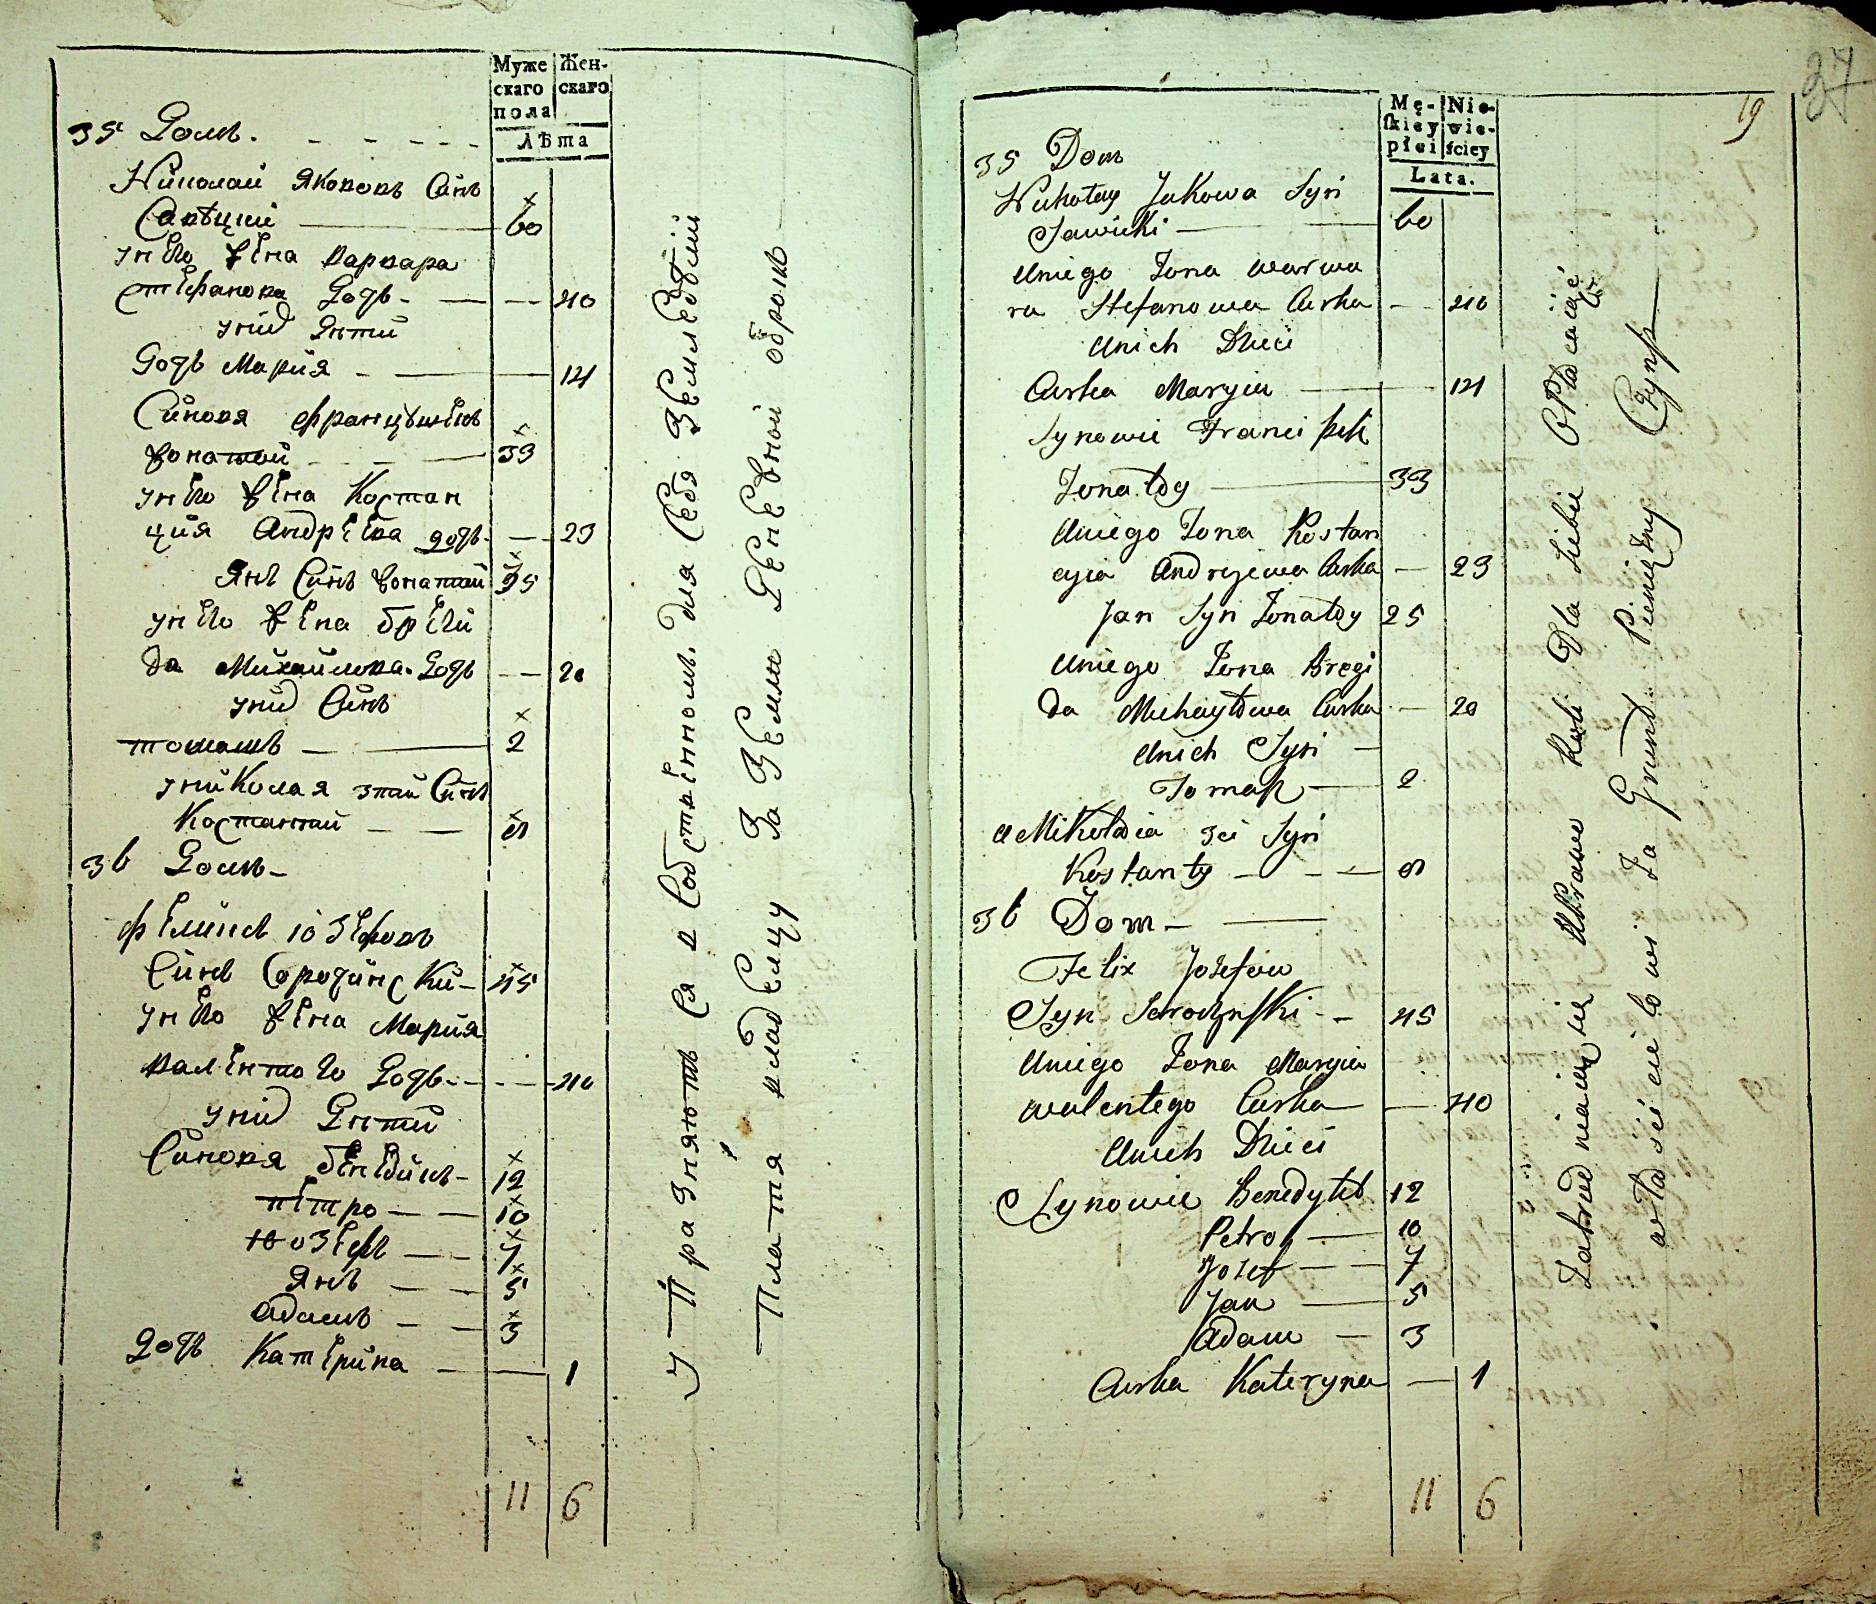 Муже
скаго
пола
Жен-
скаго
Лѣта
35 Домъ.
Николай Якововъ Синъ
Савѣцкий 60
унего жена варвара
Стефанова Дочь 40
уних Дѣти
Дочь Мария 14
Синовя Францѣшекъ
Жонатый 33
унего жена Костан
ция Андреева дочь 23
Янъ Синъ жонатий 25
унего жена бреги
да Михайлова Дочь 20
уних Синъ
томашъ 2
униколая зтий Синъ
Костантий 8
36 Домъ
феликсъ іозефовъ
Синъ Сородинский 45
унего жена Мария
валентого Дочь 40
уних Дѣти
Синовя бенедикъ 12
петро 10
юозефъ 7
Янъ 5
адамъ 3
Дочь Катерина 1
11 6
Упражняютъ Ся в Собственном. для Себя Земледѣлий
Платя владелцу За Землю Денежной оброкъ
27
19
Mę-
ſkiey
płci
Nie-
wie-
ściey
Lata.
35 Dom
Mikołay Jakowa Syn
Sawicki 60
Uniego Żona warwa
ra Stefanowa Curka 40
Unich Dzieci
Curka Maryia 14
Synowie Franciszek
Żonaty 33
Uniego Żona Kostan
cyia Andrzeiewa Curka 23
Jan Syn Żonaty 25
Uniego Żona Bregi
da Michayłowa Curka 20
Unich Syn
Tomasz 2
U Mikołaia 3ci Syn
Kostanty 8
36 Dom
Felix Jozefow
Syn Sorodzynſki 45
Uniego Żona Maryia
walentego Curka 40
Unich Dzieci
Synowie Benedykt 12
Petro 10
Jozef 7
Jan 5
Adam 3
Curka Kateryna 1
11 6
Zatrudniaią się Uprawą Roli Dla Siebie Opłacaiąc
właścicielowi Za Grunt Pieniężny Czynsz